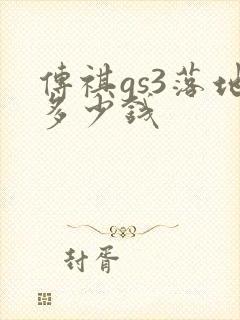 傳祺gs3落地
多少錢
封胥